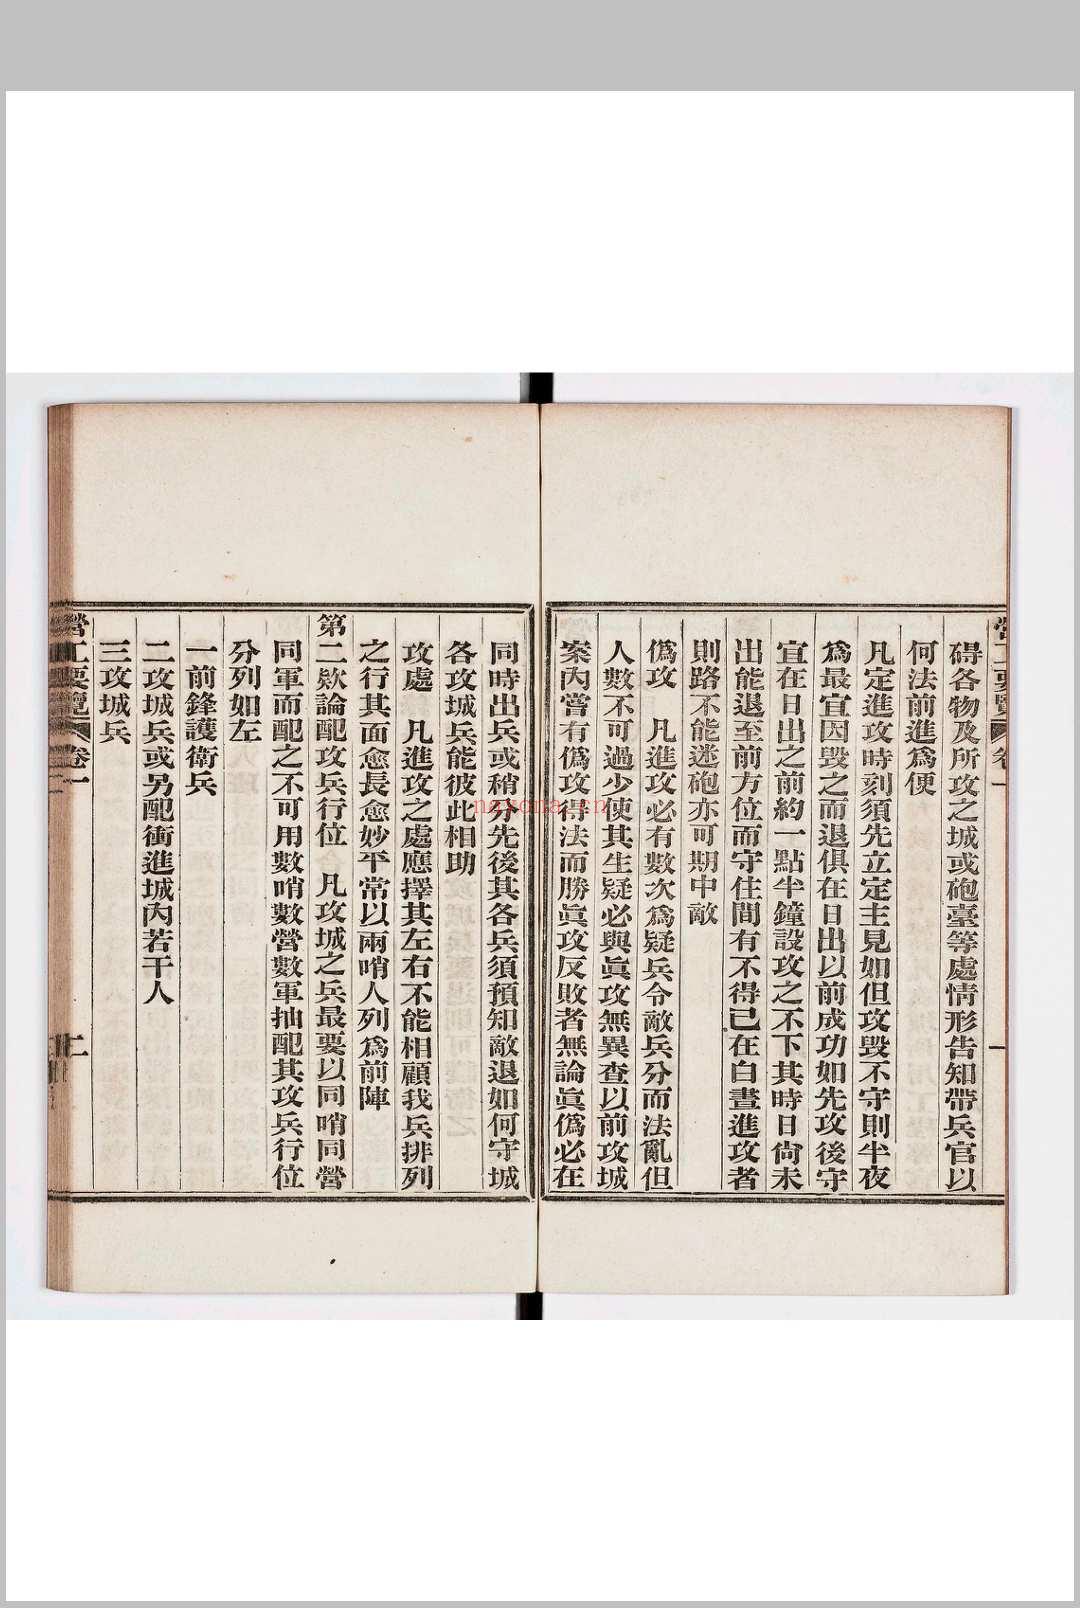 營工要覽 卷一 一
碍各物及所攻之城或砲臺等處情形告知帶兵官以
何法前進爲便
凡定進攻時刻須先立定主見如但攻毀不守則半夜
爲最宜因毀之而退俱在日出以前成功如先攻後守
宜在日出之前約一點半鐘設攻之不下其時日尙未
出能退至前方位而守住間有不得已在白晝進攻者
則路不能迷砲亦可期中敵
僞攻 凡進攻必有數次爲疑兵令敵兵分而法亂但
人數不可過少使其生疑必與眞攻無異查以前攻城
案內嘗有僞攻得法而勝眞攻反敗者無論眞僞必在
同時出兵或稍分先後其各兵須預知敵退如何守城
各攻城兵能彼此相助
攻處 凡進攻之處應擇其左右不能相顧我兵排列
之行其面愈長愈妙平常以兩哨人列爲前陣
第二欵論配攻兵行位 凡攻城之兵最要以同哨同營
同軍而配之不可用數哨數營數軍抽配其攻兵行位
分列如左
一前鋒護衛兵
二攻城兵或另配衝進城內若干人
三攻城兵
營工要覽 卷一 二
nayona.cn